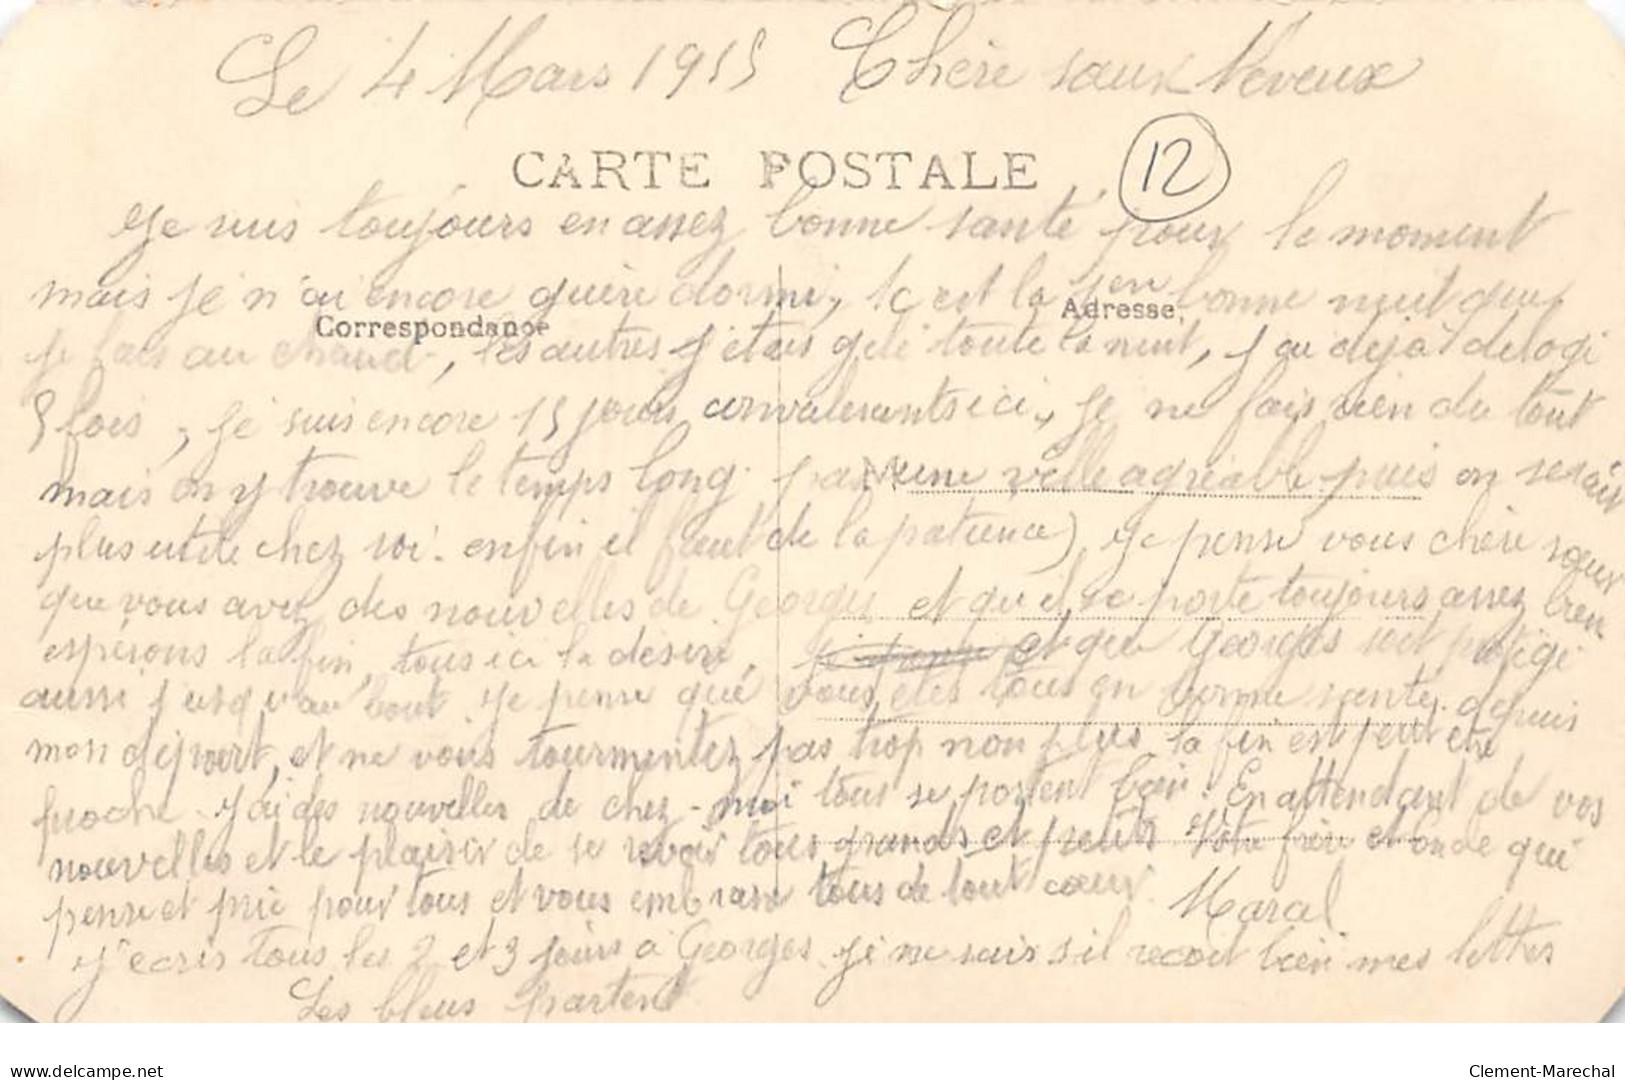 Le 4 Mars 1915 Chère sœur Neveux
CARTE POSTALE 12
Je suis toujours en assez bonne santé pour le moment
mais je n'ai encore guère dormi, c'est la bonne nuit que
Correspondance Adresse
je fais au chaud, les autres j'étais gelé toute la nuit, j'ai déjà délogé
5 fois, je suis encore 15 jours ici, je ne fais rien du tout
mais on y trouve le temps long pas une ville agréable puis on serait
plus utile chez soi. enfin il faut de la patience, je pense vous chère sœur
que vous avez des nouvelles de Georges et qu'il se porte toujours assez bien
espérons la fin, tous ici la désire, et que Georges soit protégé
aussi jusqu'au bout. Je pense que vous êtes tous en bonne santé depuis
mon départ, et ne vous tourmentez pas trop non plus la fin est peut être
proche. J'ai des nouvelles de chez-moi tous se portent bien. En attendant de vos
nouvelles et le plaisir de se revoir tous grands et petits Votre frère et oncle qui
pense et prie pour tous et vous embrasse tous de tout cœur. Maral
J'écris tous les 2 et 3 jours à Georges. je ne sais s'il recoit bien mes lettres
Les bleus partent
delcampe.net Clement-Marechal